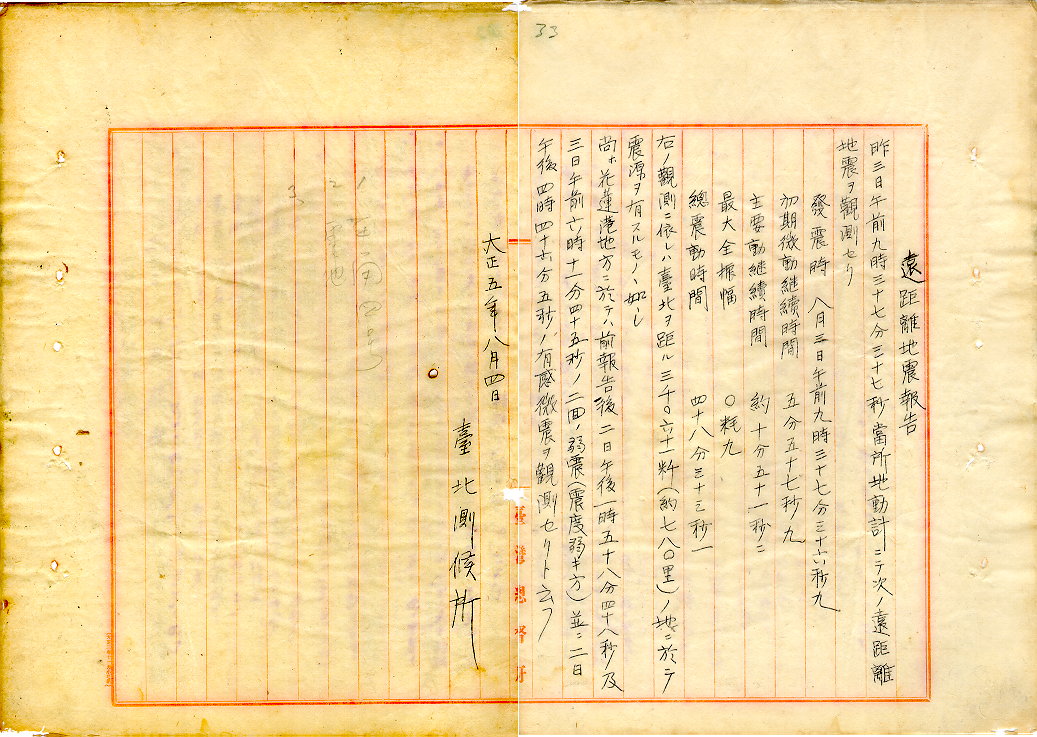 33
遠距離地震報告
昨三日午前九時三十七分三十七秒當所地動計ニテ次ノ遠距離
地震ヲ觀測セリ
發震時 八月三日午前九時三十七分三十六秒九
初期微動継續時間 五分五十七秒九
主要動継續時間 約十分五十一秒二
最大全振幅 〇粍九
總震動時間 四十八分三十三秒一
右ノ觀測ニ依レハ臺北ヲ距ル三千〇六十一粁(約七八〇里)ノ地ニ於テ
震源ヲ有スルモノヽ如シ
尚ホ花蓮港地方ニ於テハ前報告後二日午後一時五十八分四十八秒ノ及
三日午前六時十一分四十五秒ノ二回ノ弱震(震度弱キ方)並ニ二日
午後四時四十六分五秒ノ有感微震ヲ觀測セリト云フ
臺灣總督府
大正五年八月四日
臺北測候所